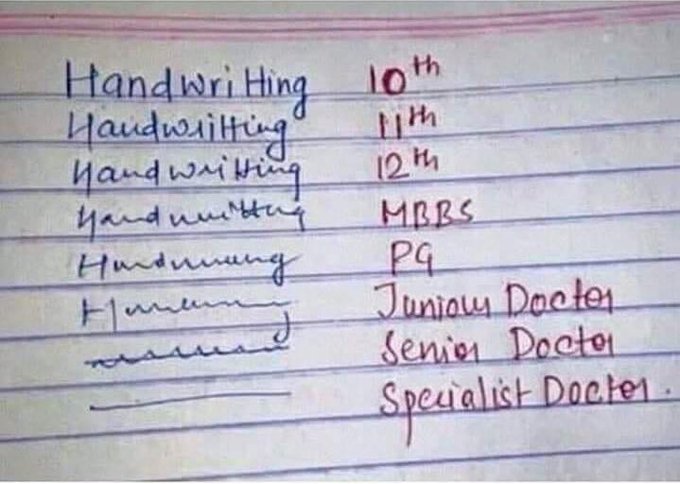 Handwritting 10th
Handwritting 11th
Handwritting 12th
Handwritting MBBS
PG
Juniou Doctor
Senior Doctor
Specialist Doctor.